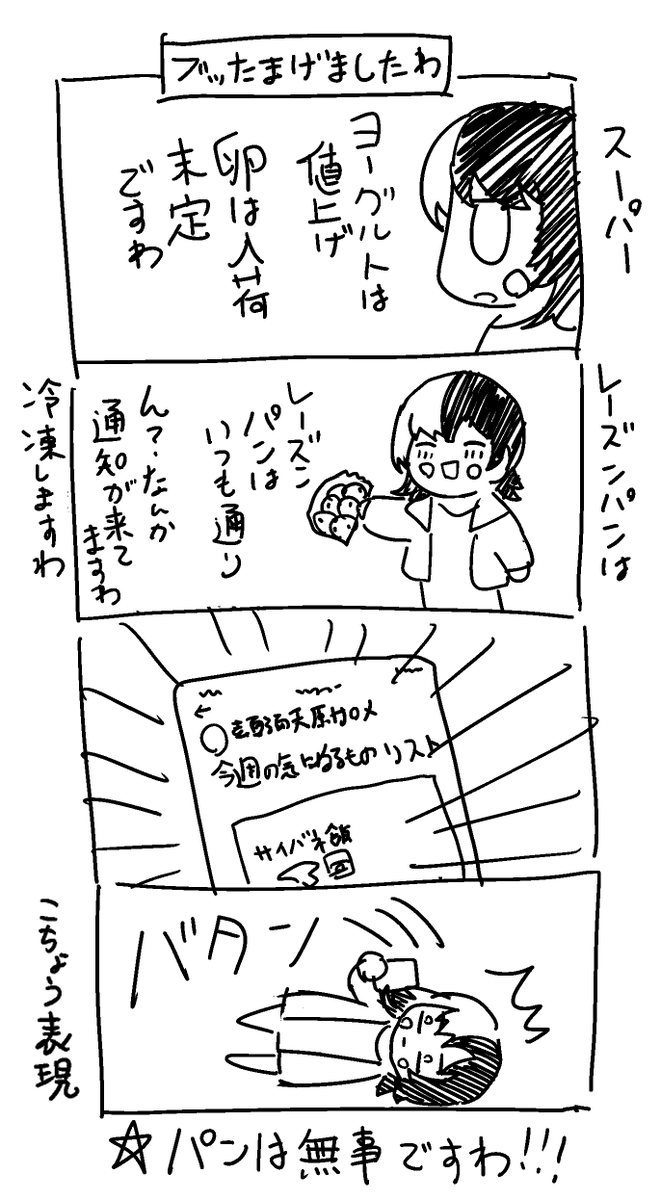 ブッたまげましたわ
スーパー
ヨーグルトは
値上げ
卵は入荷
未定
ですわ
レーズンパンは
冷凍しますわ
レーズン
パンは
いつも通り
ん?なんか
通知が来て
ますわ
壱百満天原サロメ
今週の気になるものリスト
サイバネ額
バタン
こちょう表現
☆パンは無事ですわ!!!